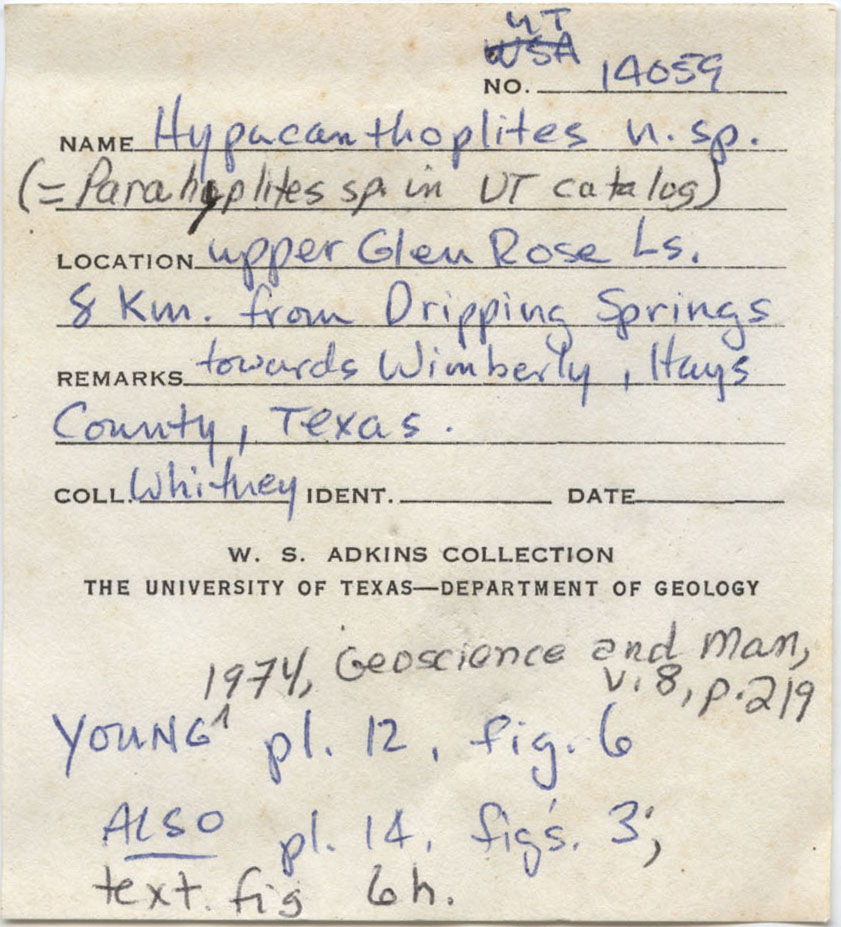 UT
WSA
NO. 14059
NAME Hypacanthoplites n. sp.
(= Parahoplites sp. in UT catalog)
LOCATION upper Glen Rose Ls.
8 Km. from Dripping Springs
REMARKS towards Wimberly, Hays
County, Texas.
COLL. Whitney IDENT. DATE
W. S. ADKINS COLLECTION
THE UNIVERSITY OF TEXAS—DEPARTMENT OF GEOLOGY
1974, Geoscience and Man,
v. 8, p. 219
YOUNG ^ pl. 12, fig. 6
ALSO pl. 14, figs. 3;
text. fig 6h.